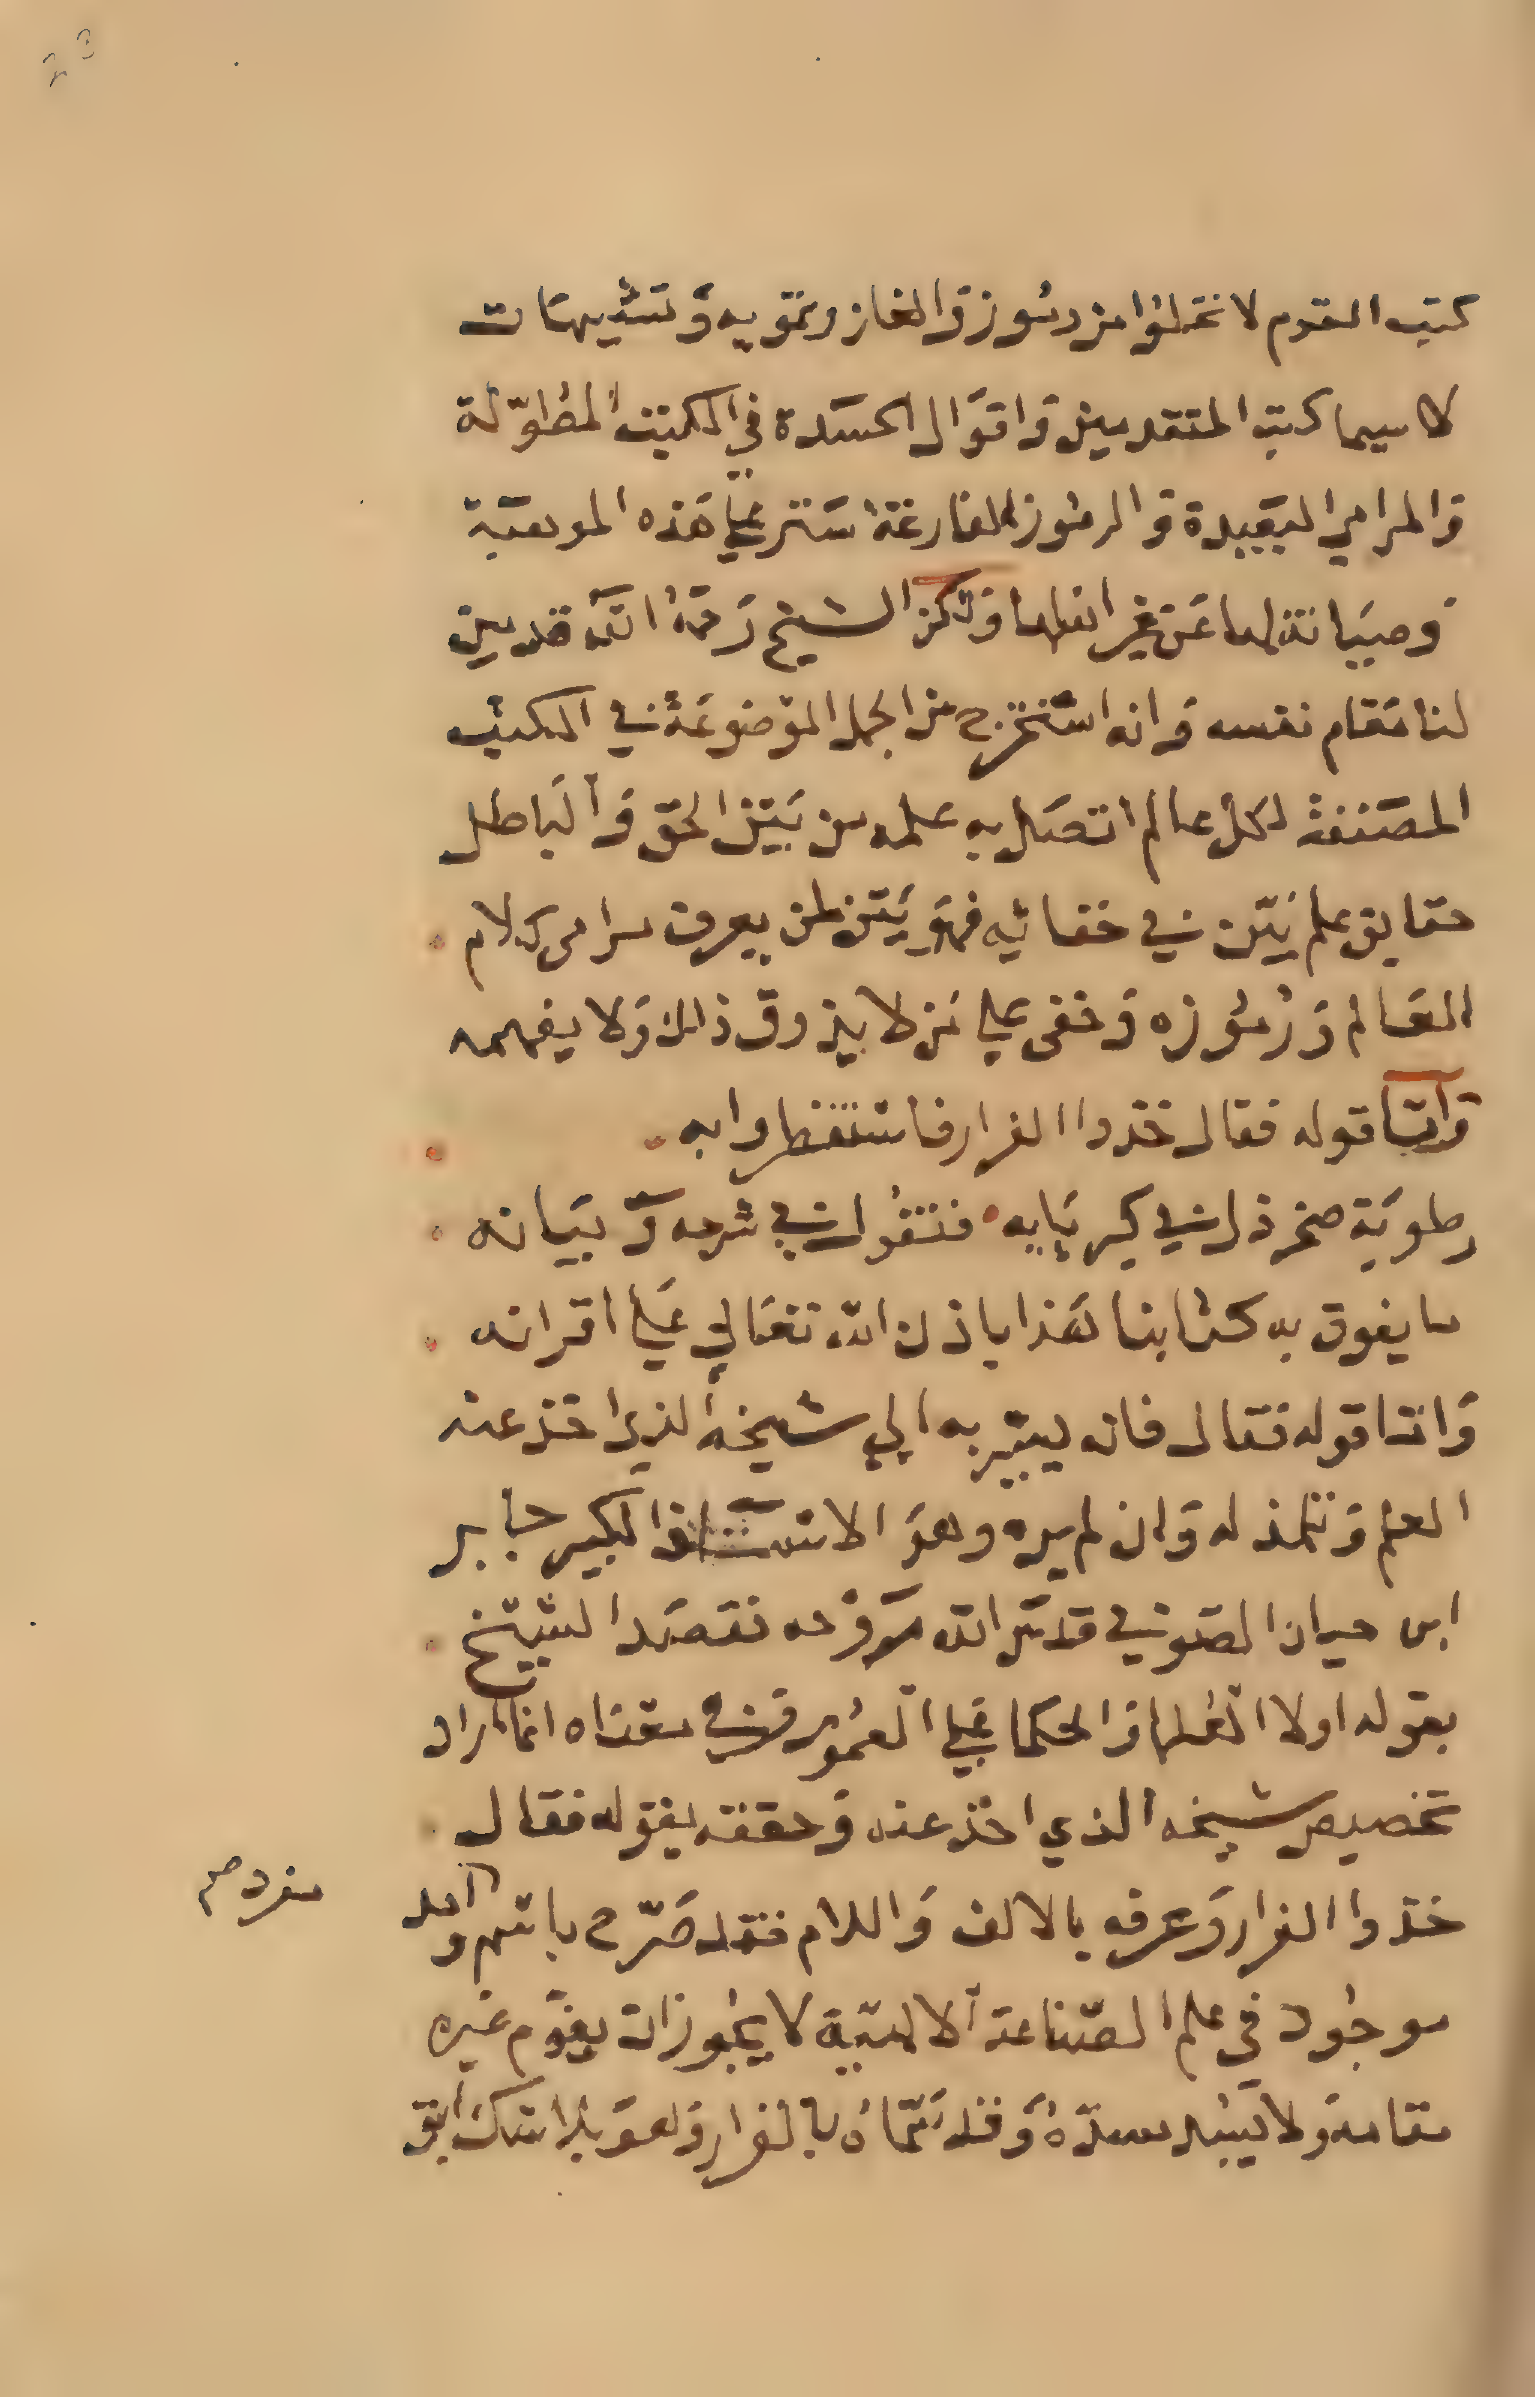 كتب القوم لا تخلوا من رموز والغاز وتمويه وتشبيهات
لا سيما كتب المتقدمين واقوال الحسدة في الكتب المطولة
والمرامي البعيدة والرموز الفارغة ستر علي هذه الموهبة
وصيانة لها عن غير اهلها ولكن الشيخ رحمه الله قد بين
لنا مقام نفسه وانه استخرج من الجمل الموضوعة في الكتب
المصنفة لكل عالم اتصل به علمه من بين الحق والباطل
حقايق علم بين في خفائه فهو بين لمن يعرف مرامي كلام
العالم ورموزه وخفي علي من لا يذوق ذلك ولا يفهمه
واما قوله فقال خذوا الفرار فاستقطروا به
رطوبة صخر ذل في كبريايه فنقول في شرحه وبيانه
ما يفوق به كتابنا هذا باذن الله تعالي علي اقرانه
واما قوله فقال فانه يشير به الي شيخه الذي اخذ عنه
العلم وتلمذ له وان لم يره وهو الاستاذ الكبير جابر
ابن حيان الصوفي قدس الله روحه فقصد الشيخ
بقوله اولا العلما والحكما علي العموم وفي معناه انما اراد
تخصيص شيخه الذي اخذ عنه وحققه بقوله فقال
خذوا الفرار وعرفه بالالف واللام فقد صرح باسم واحد
مفرد صح
موجود في علم الصناعة الالهية لا يجوز ان يقوم غيره
مقامه ولا يسد مسده وقد سماه بالفرار وهو بلا شك ابق